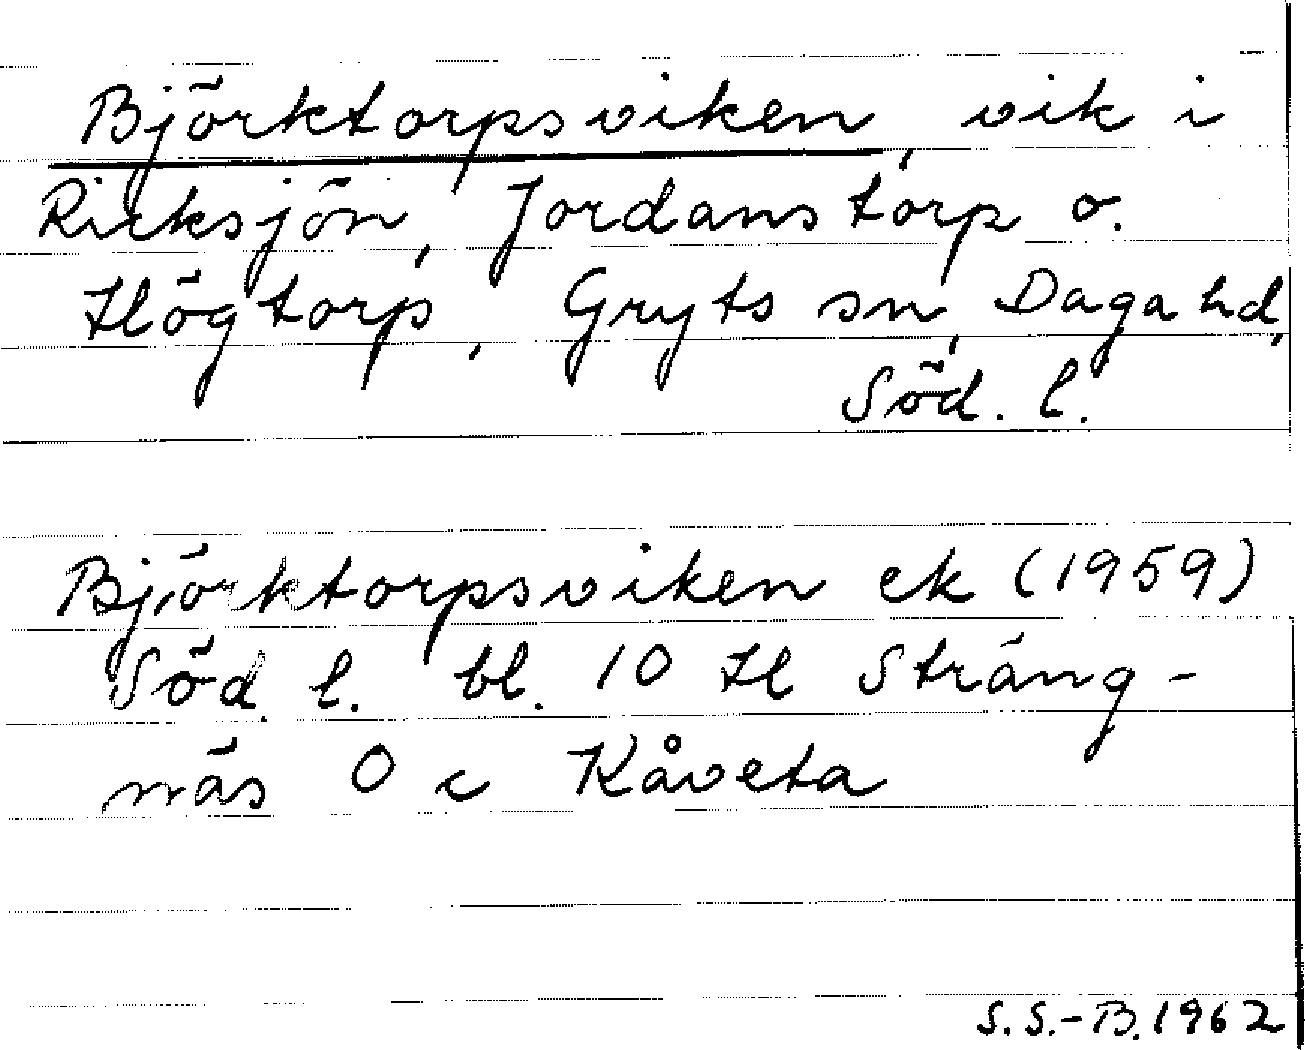 Björktorpsviken, vik i
Ricksjön, Jordanstorp o.
Högtorp, Gryts sn, Daga hd,
Söd. l.
Björktorpsviken ek (1959)
Söd. l. bl. 10 H Sträng-
näs O c Kåveta
S.S.-B. 1962